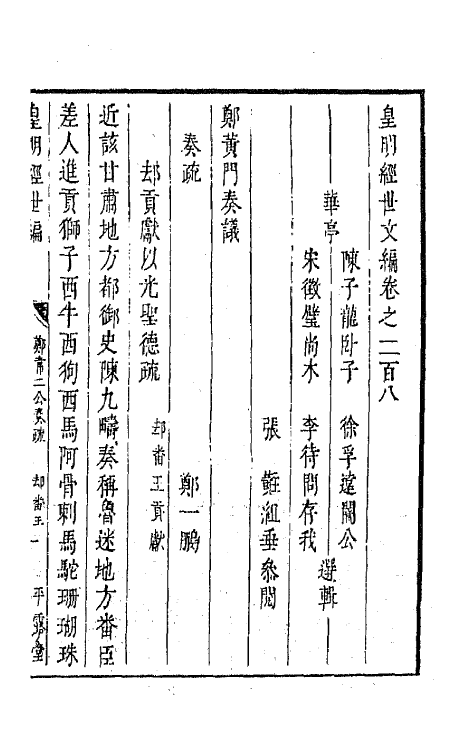 皇明經世文編卷之二百八
華亭
陳子龍臥子 徐孚遠闇公
宋徵璧尚木 李待問存我
選輯
張 垂叅閱
鄭黃門奏議
奏疏 鄭一鵬
却貢獻以光聖德疏 却番王貢獻
近該甘肅地方都御史陳九疇奏稱魯迷地方番臣
差人進貢獅子西牛西狗西馬阿骨剌馬駝珊瑚珠
皇明經世編 鄭 二公奏疏 却番王 一 平露堂